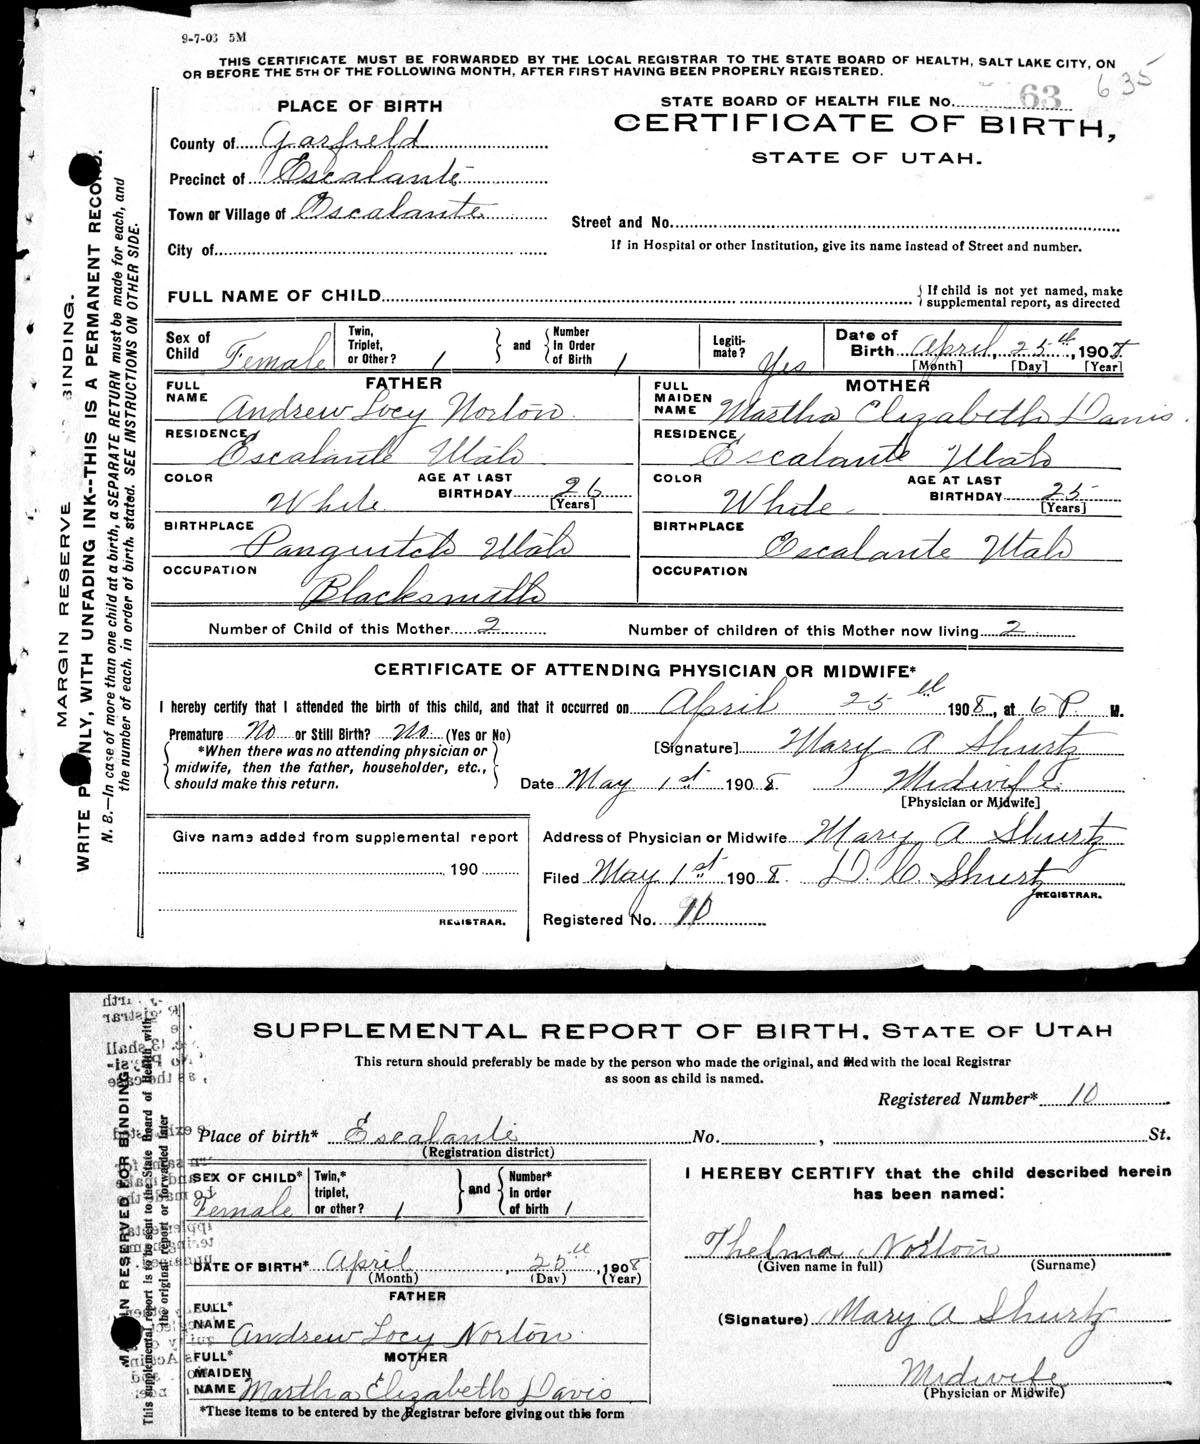 9-7-03 5M
THIS CERTIFICATE MUST BE FORWARDED BY THE LOCAL REGISTRAR TO THE STATE BOARD OF HEALTH, SALT LAKE CITY, ON
OR BEFORE THE 5TH OF THE FOLLOWING MONTH, AFTER FIRST HAVING BEEN PROPERLY REGISTERED.
635
PLACE OF BIRTH
STATE BOARD OF HEALTH FILE No. 63
CERTIFICATE OF BIRTH,
STATE OF UTAH.
County of Garfield
Precinct of Escalante
Town or Village of Escalante
Street and No.
City of
If in Hospital or other Institution, give its name instead of Street and number.
FULL NAME OF CHILD
If child is not yet named, make
supplemental report, as directed
Sex of Child Female
Twin, Triplet, or Other? 1
and
Number In Order of Birth 1
Legitimate? Yes
Date of Birth April, 25th, 1908
[Month] [Day] [Year]
FATHER
FULL NAME Andrew Locy Norton
RESIDENCE Escalante Utah
COLOR White
AGE AT LAST BIRTHDAY 26
[Years]
BIRTHPLACE Panguitch Utah
OCCUPATION Blacksmith
MOTHER
FULL MAIDEN NAME Martha Elizabeth Davis
RESIDENCE Escalante Utah
COLOR White
AGE AT LAST BIRTHDAY 25
[Years]
BIRTHPLACE Escalante Utah
OCCUPATION
Number of Child of this Mother 2
Number of children of this Mother now living 2
CERTIFICATE OF ATTENDING PHYSICIAN OR MIDWIFE*
I hereby certify that I attended the birth of this child, and that it occurred on April 25th 1908, at 6 P. M.
Premature No or Still Birth? No (Yes or No)
*When there was no attending physician or
midwife, then the father, householder, etc.,
should make this return.
[Signature] Mary A Shurtz
Date May 1st 1908
Midwife
[Physician or Midwife]
Give name added from supplemental report
190
REGISTRAR.
Address of Physician or Midwife Mary A Shurtz
Filed May 1st 1908. D. C. Shurtz
REGISTRAR.
Registered No. 10
MARGIN RESERVE BINDING.
WRITE PLINLY, WITH UNFADING INK--THIS IS A PERMANENT RECORD.
N. B.—In case of more than one child at a birth, a SEPARATE RETURN must be made for each, and
the number of each, in order of birth, stated. SEE INSTRUCTIONS ON OTHER SIDE.
SUPPLEMENTAL REPORT OF BIRTH, STATE OF UTAH
This return should preferably be made by the person who made the original, and filed with the local Registrar
as soon as child is named.
Registered Number* 10
Place of birth* Escalante No. , St.
(Registration district)
SEX OF CHILD* Female
Twin,* triplet, or other? 1
and
Number* in order of birth 1
DATE OF BIRTH* April, 25th, 1908
(Month) (Day) (Year)
FATHER
FULL* NAME Andrew Locy Norton
MOTHER
FULL* MAIDEN NAME Martha Elizabeth Davis
*These items to be entered by the Registrar before giving out this form
I HEREBY CERTIFY that the child described herein
has been named:
Thelma Norton
(Given name in full) (Surname)
(Signature) Mary A Shurtz
Midwife
(Physician or Midwife)
IN RESERVED FOR BINDING
This supplemental report is to be sent to the State Board of Health with
the original report or forwarded later